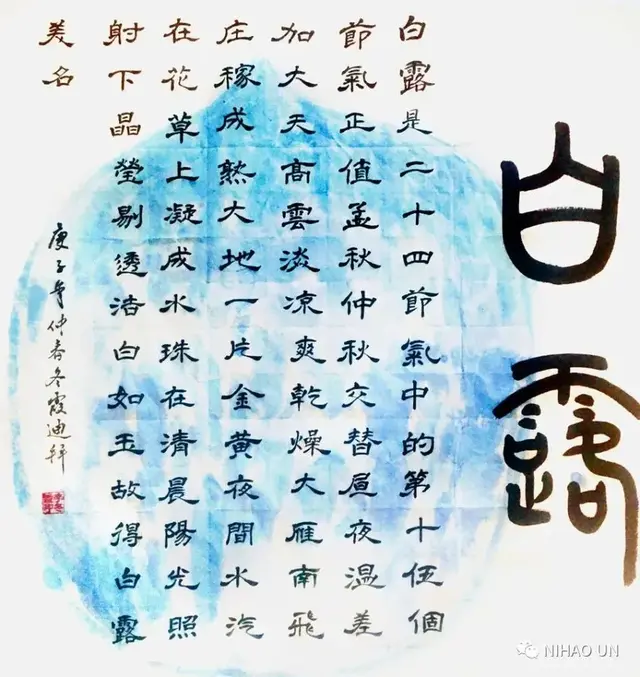 白露
白露是二十四節氣中的第十伍個
節氣正值孟秋仲秋交替昼夜溫差
加大天高雲淡凉爽乾燥大雁南飛
庄稼成熟大地一片金黄夜間水汽
在花草上凝成水珠在清晨陽光照
射下晶瑩剔透洁白如玉故得白露
美名
庚子年仲春冬霞迪拜
NIHAO UN